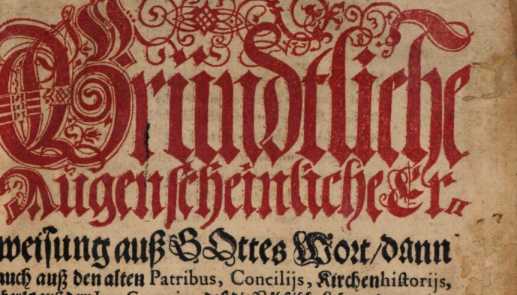 Gründtliche
Augenscheinliche Er-
weisung auß GOttes Wort/dann
auch auß den alten Patribus, Concilijs, Kirchenhistorijs,